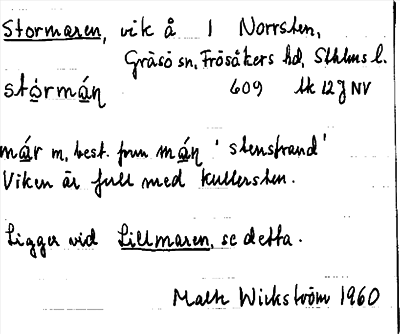 Stormaren, vik å 1 Norrsten,
Gräsö sn, Frösåkers hd, Sthlms l.
stórmáṇ 609 tk 12J NV
már m, best. form máṇ 'stenstrand'
Viken är full med kullersten.
Ligger vid Lillmaren, se detta.
Mats Wickström 1960